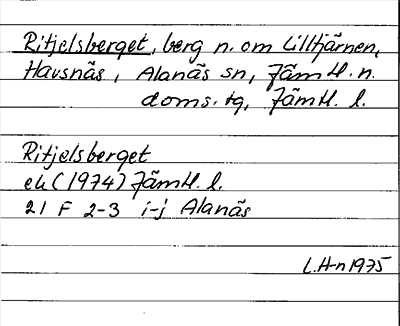 Ritjelsberget, berg n. om Lilltjärnen,
Havsnäs, Alanäs sn, Jämtl. n.
doms. tg, Jämtl. l.
Ritjelsberget
ek (1974) Jämtl. l.
21 F 2-3 i-j Alanäs
L.H-n 1975